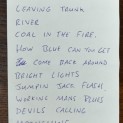 LEAVING TRUNK
RIVER
COAL IN THE FIRE.
HOW BLUE CAN YOU GET
COME BACK AROUND
BRIGHT LIGHTS
JUMPIN JACK FLASH
WORKING MANS BLUES
DEVILS CALLING